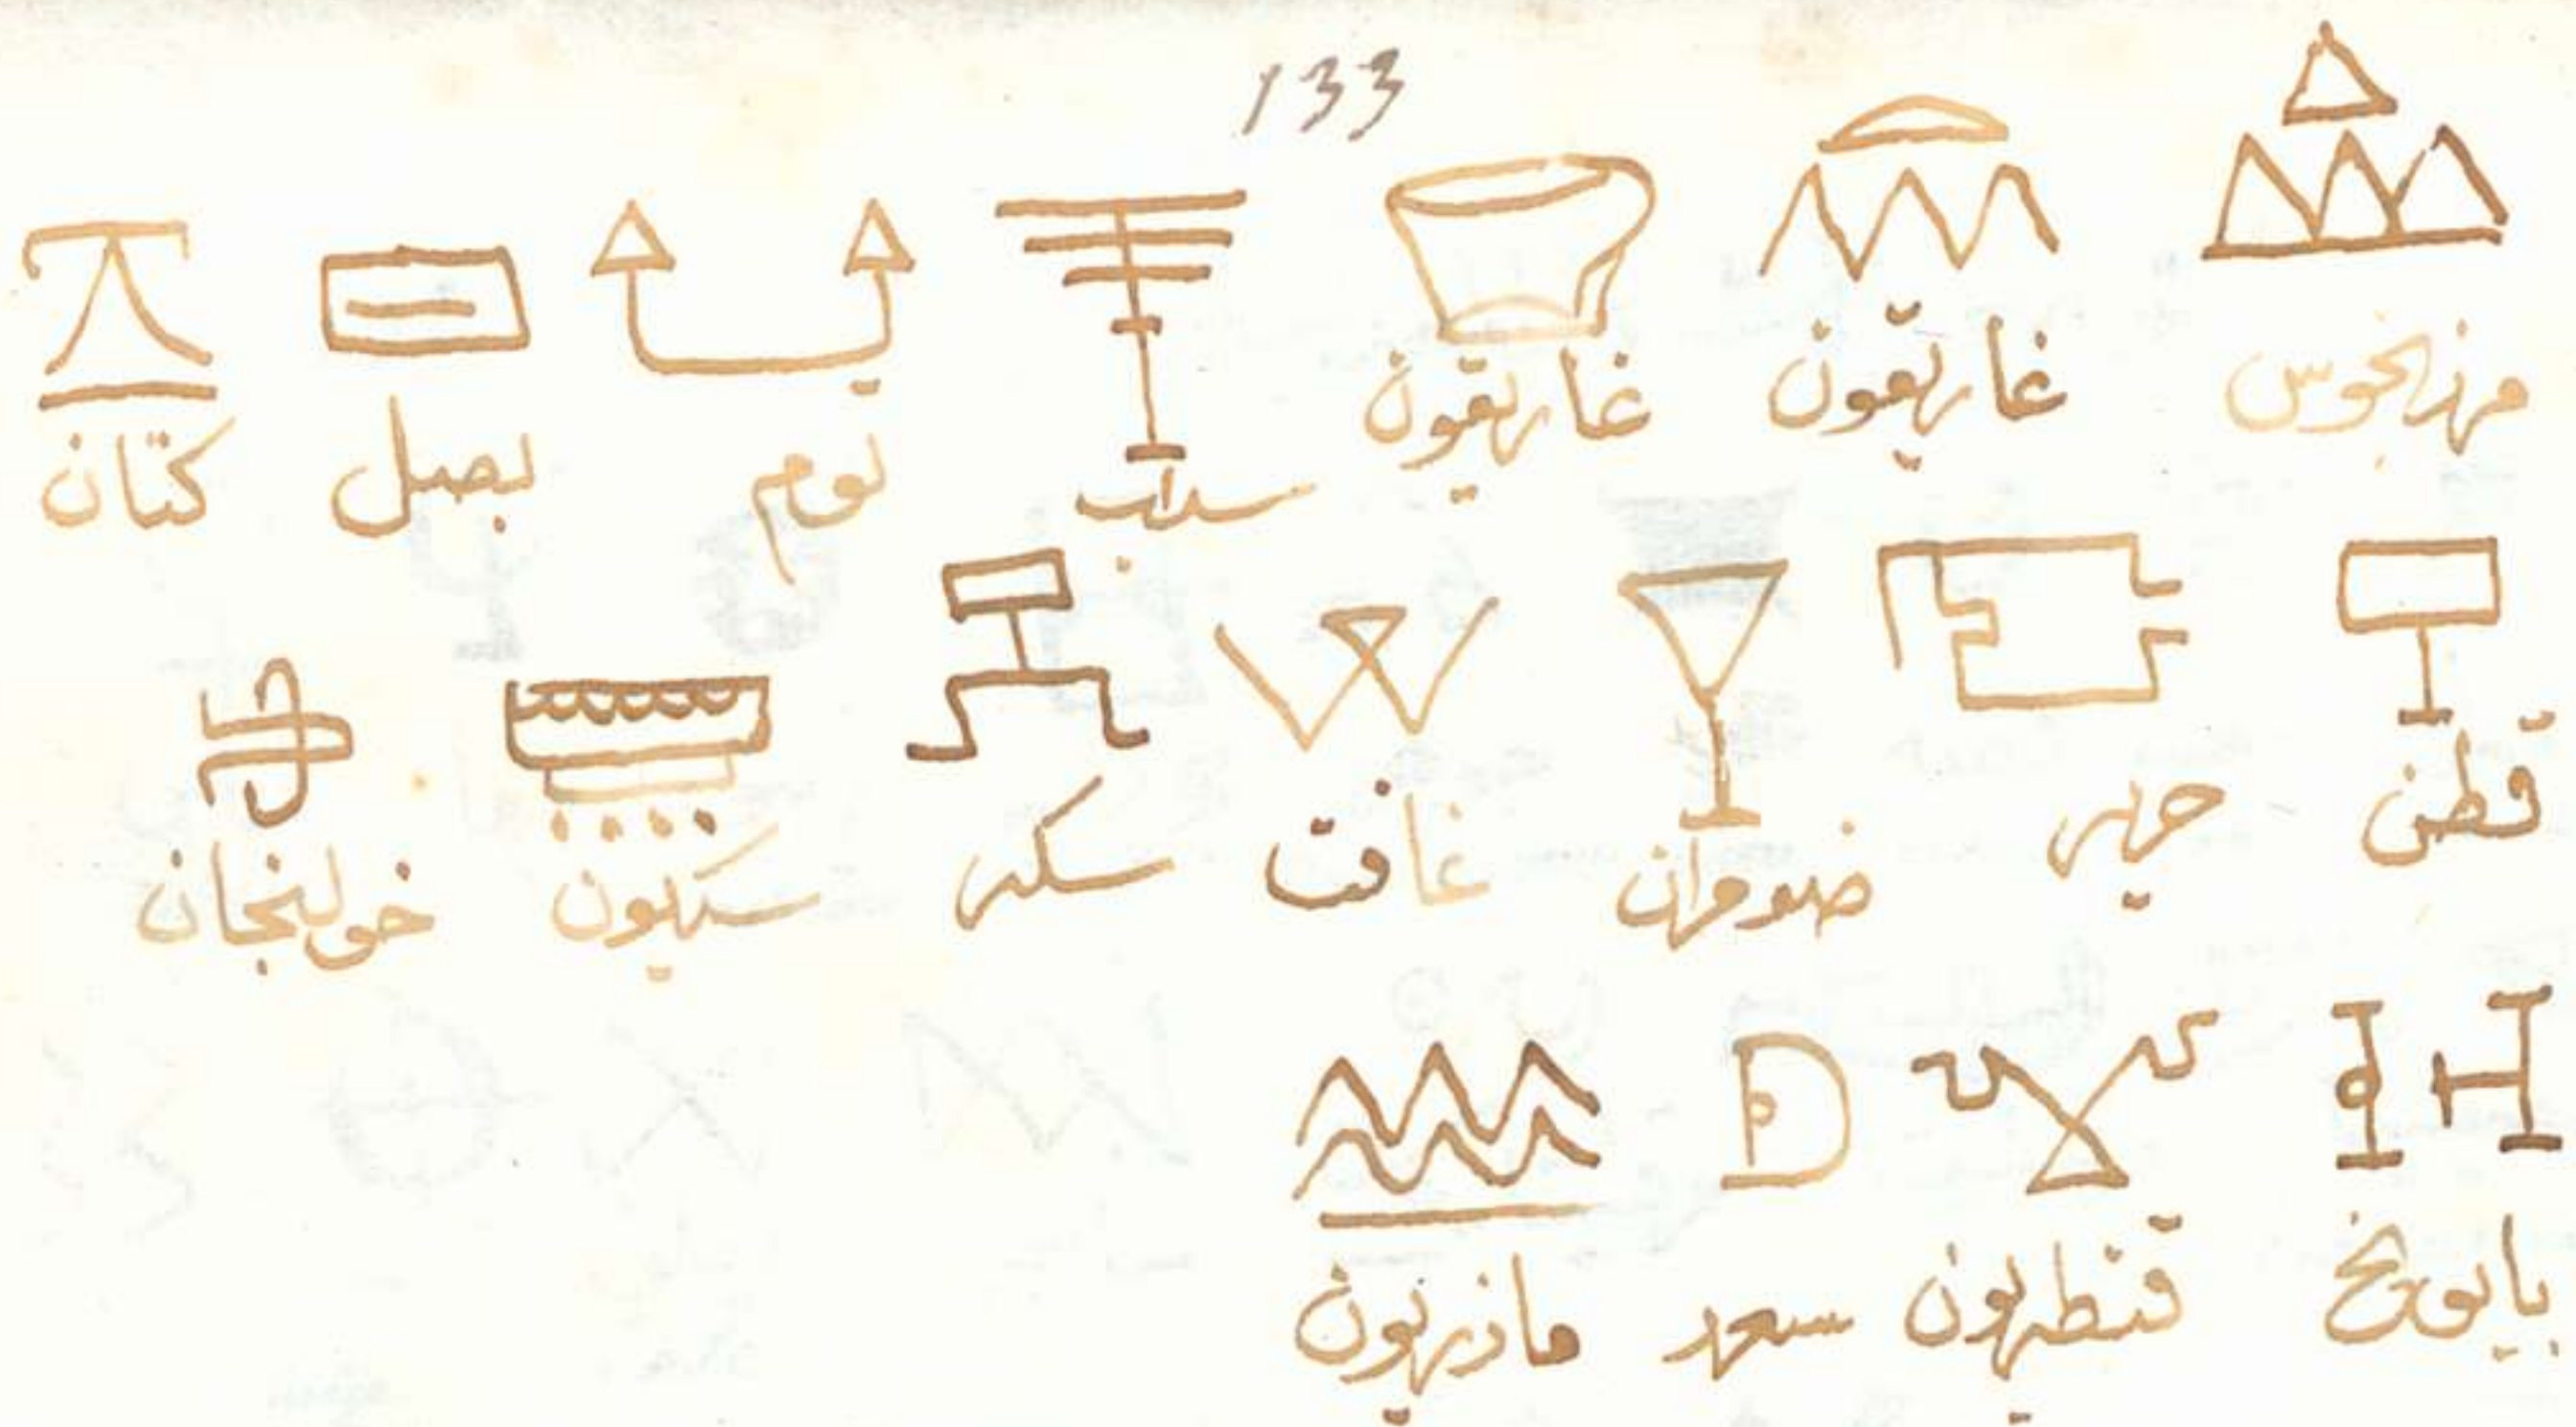 133
مرزنجوس غاريقون غاريقون سداب توم بصل كتان
قطن حرير ضومران غافت سكر سكبيون خولنجان
بابونج قنطريون سعد مازريون